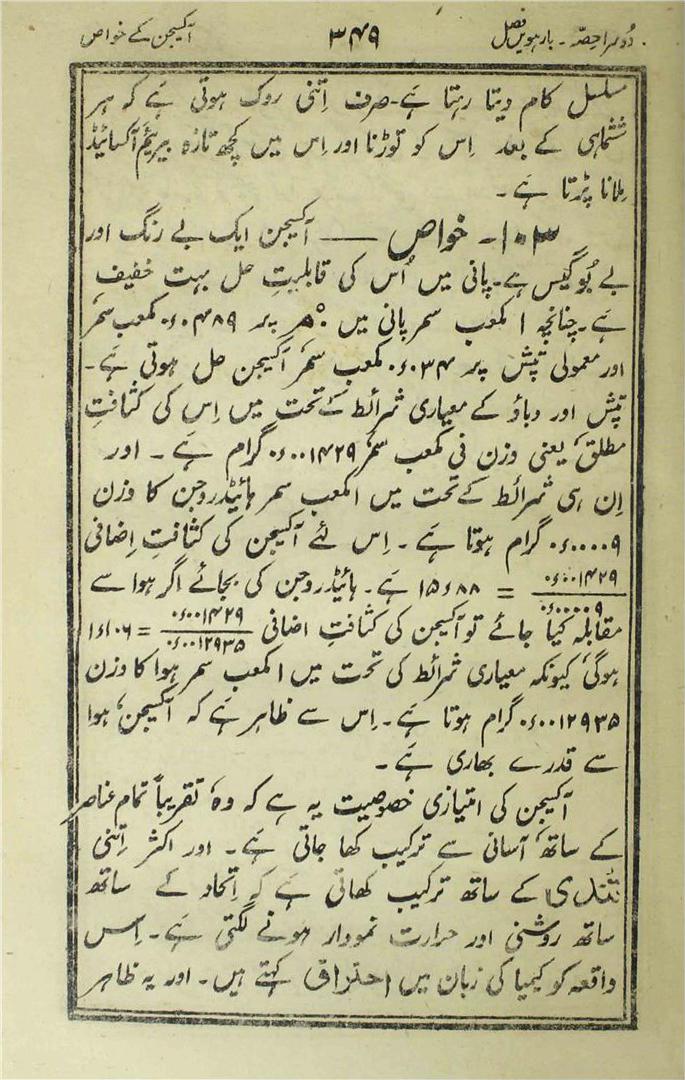 دُوسرا حصّہ ۔ بارھویں فصل ۳۴۹ آکسیجن کے خواص
مسلسل کام دیتا رہتا ہے۔ صرف اِتنی روک ہوتی ہے کہ ہر
ششماہی کے بعد اِس کو توڑنا اور اِس میں کچھ تازہ بیریئم آکسائیڈ
مِلانا پڑتا ہے ۔
۱۰۳۔ خواص —— آکسیجن ایک بے رنگ اور
بے بُو گیس ہے۔ پانی میں اُس کی قابلیتِ حل بہت خفیف
ہے۔ چنانچہ ۱ مکعب سمر پانی میں ۰°ھر پر ۰۴۸۹ء۰ مکعب سمر
اور معمولی تپش پر ۰۳۴ء۰ مکعب سمر آکسیجن حل ہوتی ہے۔
تپش اور دباؤ کے معیاری شرائط کے تحت میں اِس کی کثافتِ
مطلق، یعنی وزن فی مکعب سمر ۰۰۱۴۲۹ء۰ گرام ہے ۔ اور
اِن ہی شرائط کے تحت میں ۱ مکعب سمر ہائیڈروجن کا وزن
۰۰۰۰۹ء۰ گرام ہوتا ہے ۔ اِس لئے آکسیجن کی کثافتِ اِضافی
۰۰۱۴۲۹ء۰ / ۰۰۰۰۹ء۰ = ۸۸ء۱۵ ہے۔ ہائیڈروجن کی بجائے اگر ہوا سے
مقابلہ کیا جائے تو آکسیجن کی کثافتِ اضافی ۰۰۱۴۲۹ء۰ / ۰۰۱۲۹۳۵ء۰ = ۱۰۶ء۱
ہوگی، کیونکہ معیاری شرائط کی تحت میں ۱ مکعب سمر ہوا کا وزن
۰۰۱۲۹۳۵ء۰ گرام ہوتا ہے ۔ اِس سے ظاہر ہے کہ آکسیجن، ہوا
سے قدرے بھاری ہے ۔
آکسیجن کی امتیازی خصوصیت یہ ہے کہ وہ تقریباً تمام عناصر
کے ساتھ، آسانی سے ترکیب کھا جاتی ہے ۔ اور اکثر اِتنی
تُندی کے ساتھ ترکیب کھاتی ہے کہ اِتحاد کے ساتھ
ساتھ روشنی اور حرارت نمودار ہونے لگتی ہے ۔ اِس
واقعہ کو کیمیا کی زبان میں احتراق کہتے ہیں ۔ اور یہ ظاہر